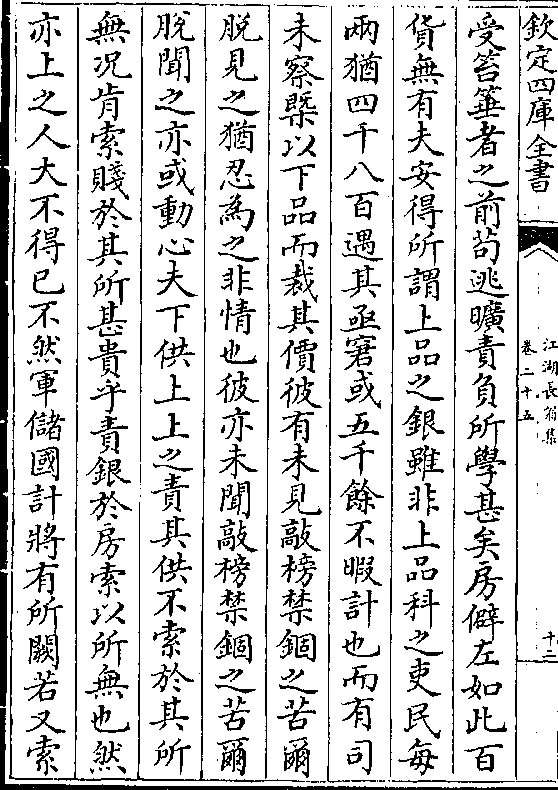 欽定四庫全書
江湖長翁集
卷二十五
十二
受笞箠者之前茍逃曠責負所學甚矣房僻左如此百
貨無有夫安得所謂上品之銀雖非上品科之吏民每
兩猶四千八百遇其亟窘或五千餘不暇計也而有司
未察槩以下品而裁其價彼有未見敲榜禁錮之苦爾
脱見之猶忍為之非情也彼亦未聞敲榜禁錮之苦爾
脱聞之亦或動心夫下供上上之責其供不索於其所
無况肯索賤於其所甚貴乎責銀於房索以所無也然
亦上之人大不得已不然軍儲國計將有所闕若又索